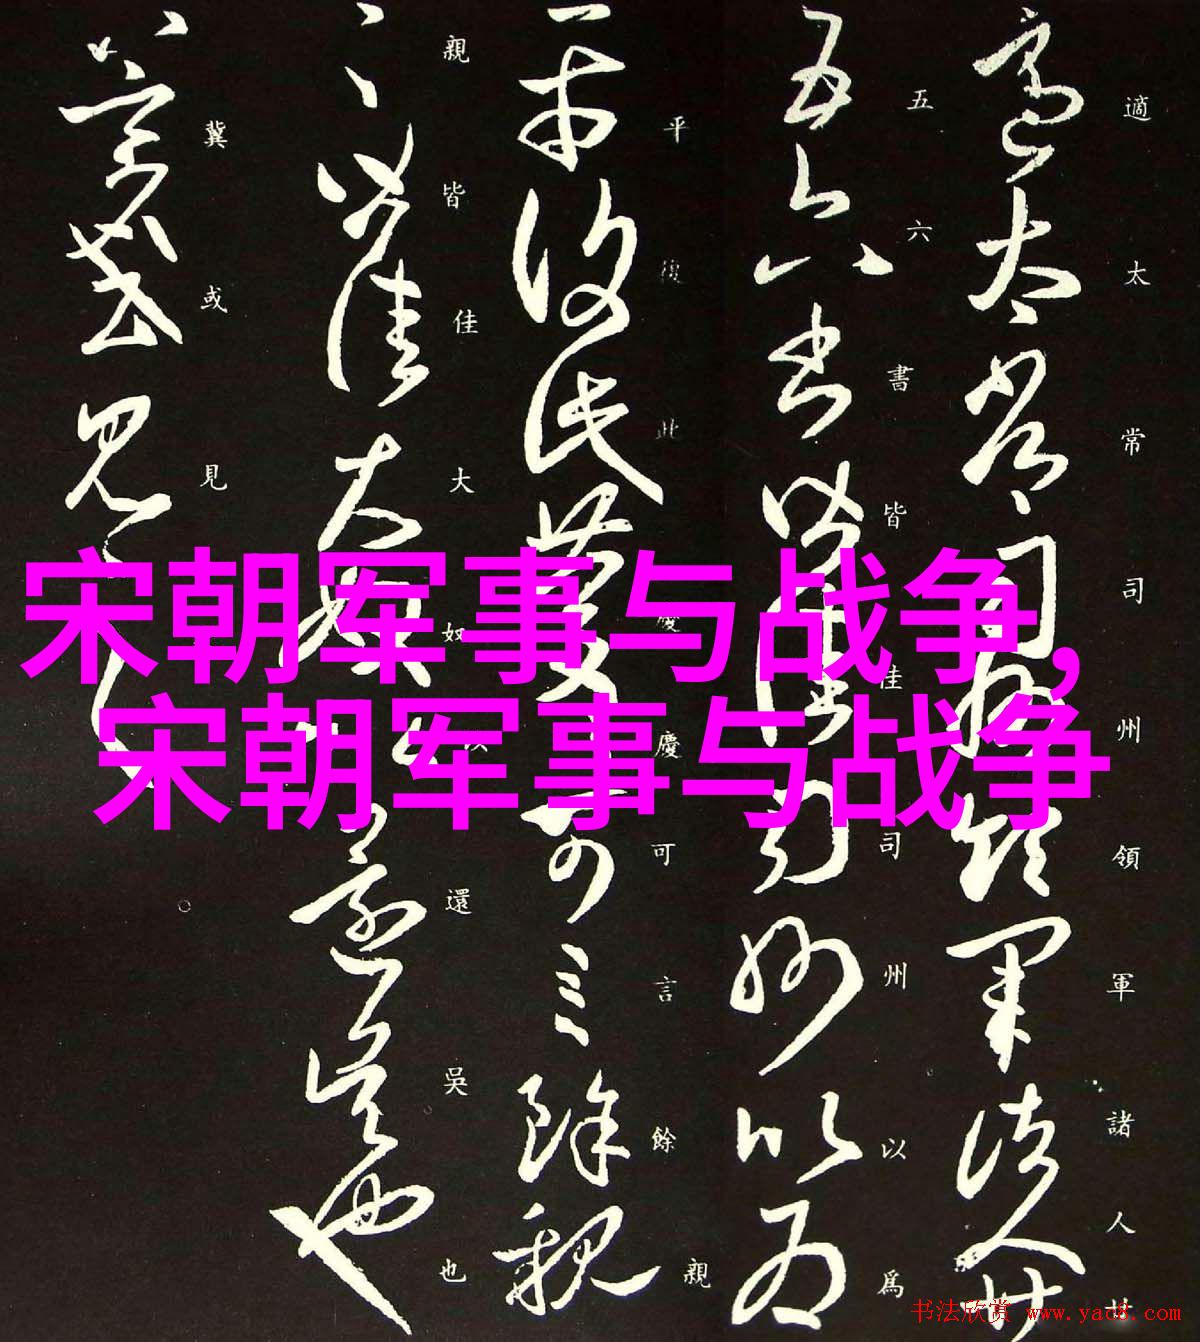 適太常司州領軍諸人廿
五六書皆佳司州以為
平復此慶慶可言餘親
親皆佳大奴以還吳也
冀或見
宋朝军事与战争,
宋朝军事与战争
书法欣赏 www.yac8.com